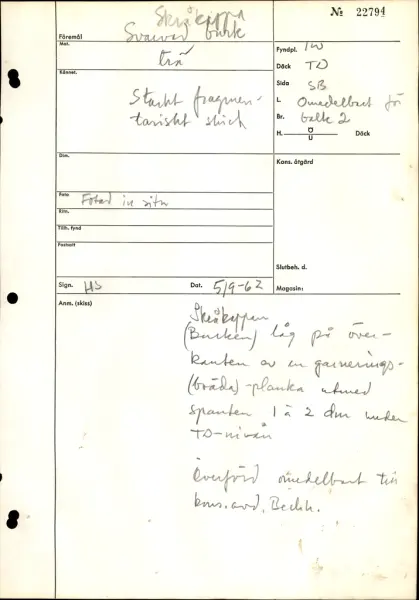 Nº 22794
Föremål Skråkappa
Svarvad burk
Mat. trä
Kännet.
Starkt fragmen-
tariskt skick
Dim.
Foto Fotad in situ
Ritn.
Tillh. fynd
Fastsatt
Sign. HS Dat. 5/9-62
Fyndpl. IW
Däck TD
Sida SB
L. Omedelbart för
Br. balk 2
H. Ö Däck
U
Kons. åtgärd
Slutbeh. d.
Magasin:
Anm. (skiss)
Skråkappan
(Burken) låg på över-
kanten av en garnerings-
(bräda)-planka utmed
spanten 1 à 2 dm under
TD-nivån
Överförd omedelbart till
kons.avd. Beckh.